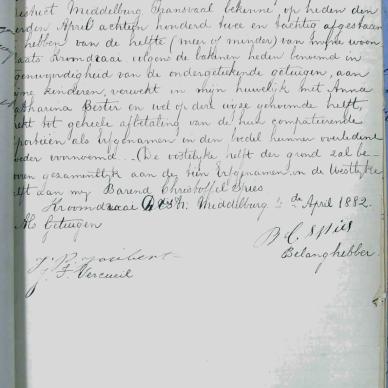 District Middelburg Transvaal bekenne, op heden den
April achtien honderd twee en tachtig afgestaan
hebben van de helfte (meer of minder) van mijne woon
plaats Kromdraai volgens de bakenen heden benoemd in
tegenwoordigheid van de ondergetekende getuigen, aan
mijne kinderen, verwekt in mijn huwelijk met Anna
Catharina Bester en wel op deze wijze genoemde helft,
strekt tot geheele afbetaling van de hun competeerende
portiën als erfgenamen in den boedel hunner overledene
moeder voornoemd. (De oostelijke helft der grond zal be-
hooren gezamentlijk aan de Erfgenamen en de Westlyke
helft aan my Barend Christoffel Spies
Kroomdraai Dist: Middelburg de April 1882.
Als Getuigen
B. C. Spies
Belanghebber.
J. P. Joubert
J. F. Vercueil